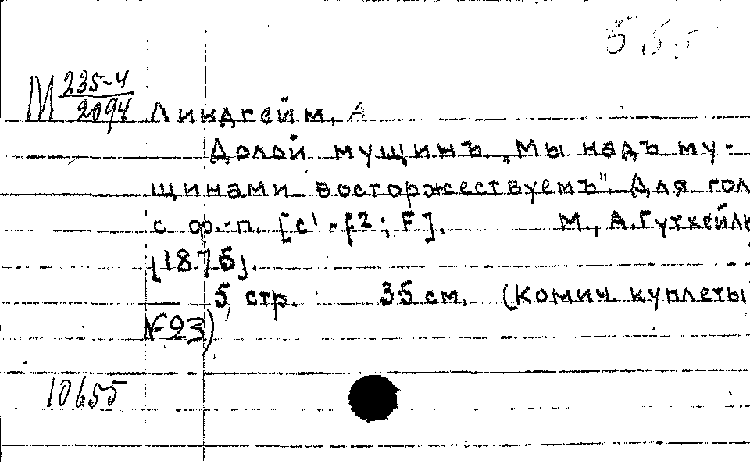 555
М 235-4
2094
Линдгейм, А
Долой мущинъ „Мы надъ му-
щинами восторжествуемъ". Для гол
с ф.-п. [c¹-f²; F]. М., А. Гутхейль
[1875].
5 стр. 35 см. (Комич. куплеты
№23)
10655